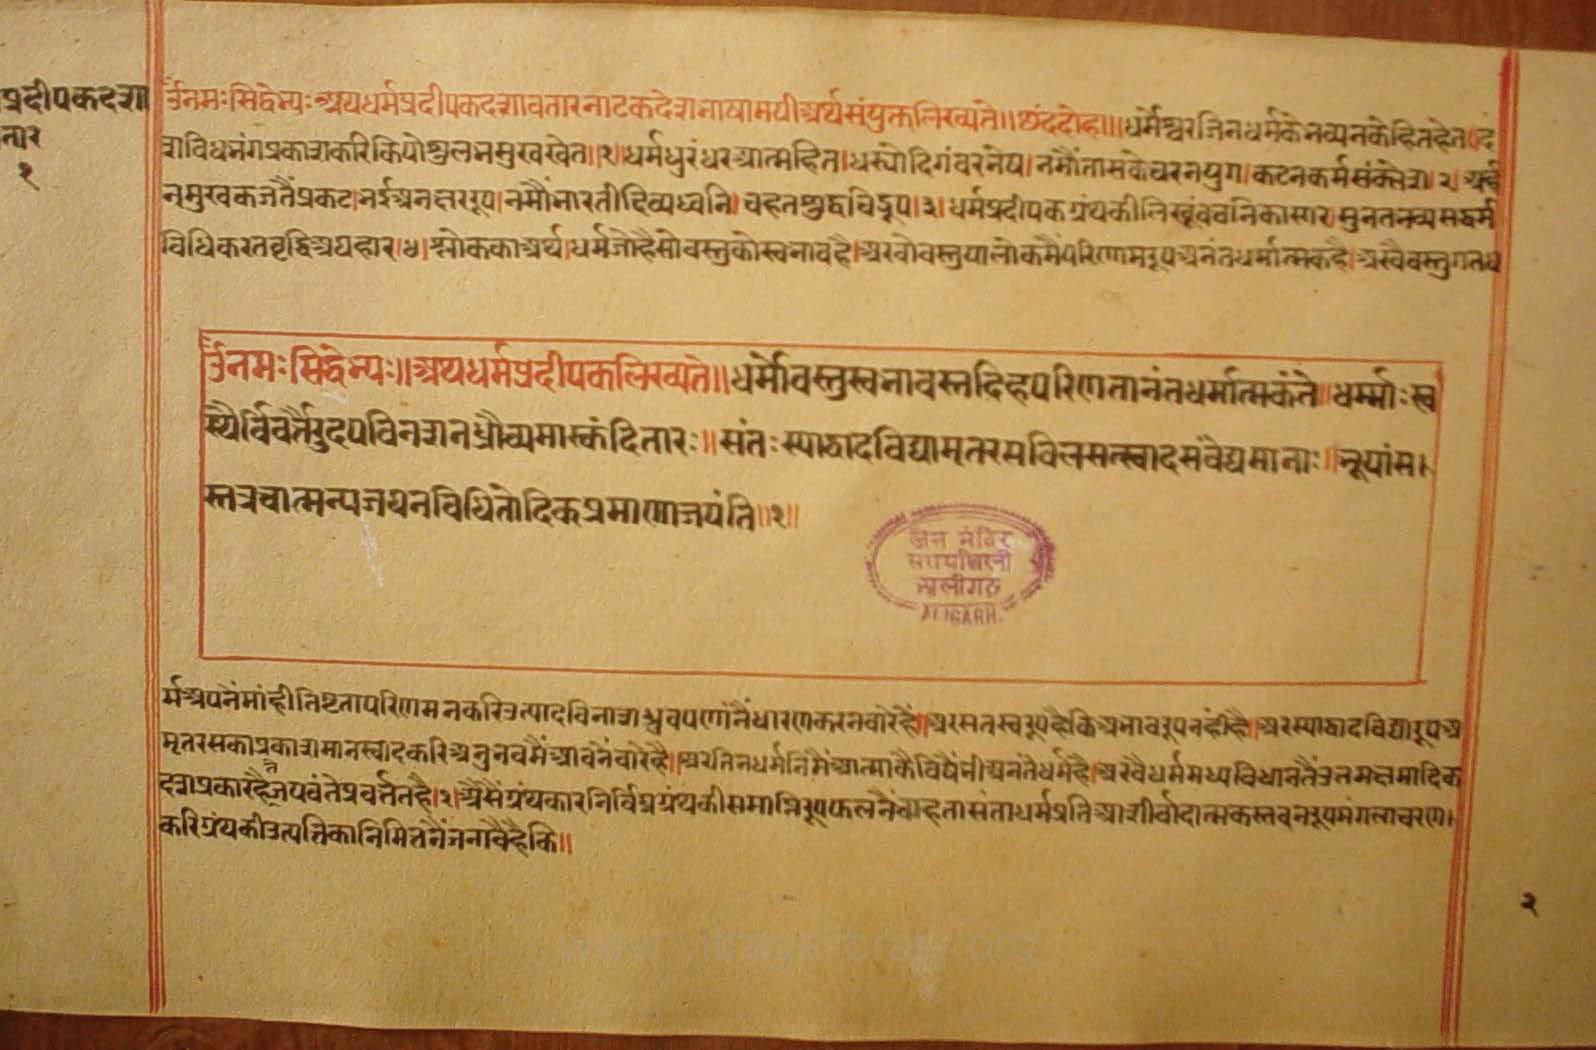 प्रदीपकदशा
१
र्उनमःसिद्धेभ्यःअथधर्मप्रदीपकदशावतारनाटकदेशभाषामयीअर्थसंयुक्तलिख्यते॥छंददोहा॥॥धर्मेश्वरजिनधर्मकेभव्यनकेहितहेत।द
शविधभंगप्रकाशकरिकियो मुखखेत।१।धर्मधुरंधरआत्महितधस्योदिगंवरभेष।नमौंतासकेचरनयुग।कटनकर्मसंक्लेश।२।अर्ह
न्मुखकजतैंप्रकट।भईअनक्षररूप।नमौंभारतीदिव्यध्वनि।चहतशुद्धचिद्रूप।३।धर्मप्रदीपकग्रंथकीलिखूंवचनिकासार।सुनतभव्यसद्धर्म
विधिकरतवृद्धिअघहार।४।श्लोककाअर्थ।धर्मजोहैसोवस्तुकोस्वभावहै।अरवोवस्तुयालोकमैंपरिणामरूपअनंतधर्मात्मकहै।अरवैवस्तुगतध
र्उनमःसिद्धेभ्यः॥अथधर्मप्रदीपकलिख्यते॥धर्मोवस्तुस्वभावस्तदिहपरिणतानंतधर्मात्मकंते॥धर्म्माःस्व
स्थैर्विवर्तैरुदयविनशनध्रौव्यमास्कंदितारः॥संतःस्याद्वादविद्यामृतरसविलसत्स्वादसंवेद्यमानाः॥भूयांस
स्तत्रचात्मन्यजथनविधितोदिकप्रमाणाजयंति॥१॥
जैन मंदिर
अलीगढ
ALIGARH.
र्मअपनैंमांहीतिष्टतापरिणमनकरिउत्पादविनाशध्रुवपणांनैंधारणकरनवारेहैं।अरसतस्वरूपहैकिअभावरूपनहींहै।अरस्याद्वादविद्यारूपअ
मृतरसकाप्रकाशमानस्वादकरिअनुभवमैंआवनेवारेहै।अरजिनधर्मनिमैंआत्माकैविषैंभीअनंतेधर्महै।अरवैधर्ममध्यविधानतैंउत्तमक्षमादिक
दशप्रकारहैजयवंतेप्रवर्त्ततहै।१।अैसैंग्रंथकारनिर्विघ्नग्रंथकीसमाप्तिरूपफलनैंचाहतासंताधर्मप्रतिआशीर्वादात्मकस्तवनरूपमंगलाचरण
करिग्रंथकीउत्पत्तिकानिमित्तनैंजनावैहैकि॥
२
www.vitragelibrary.org